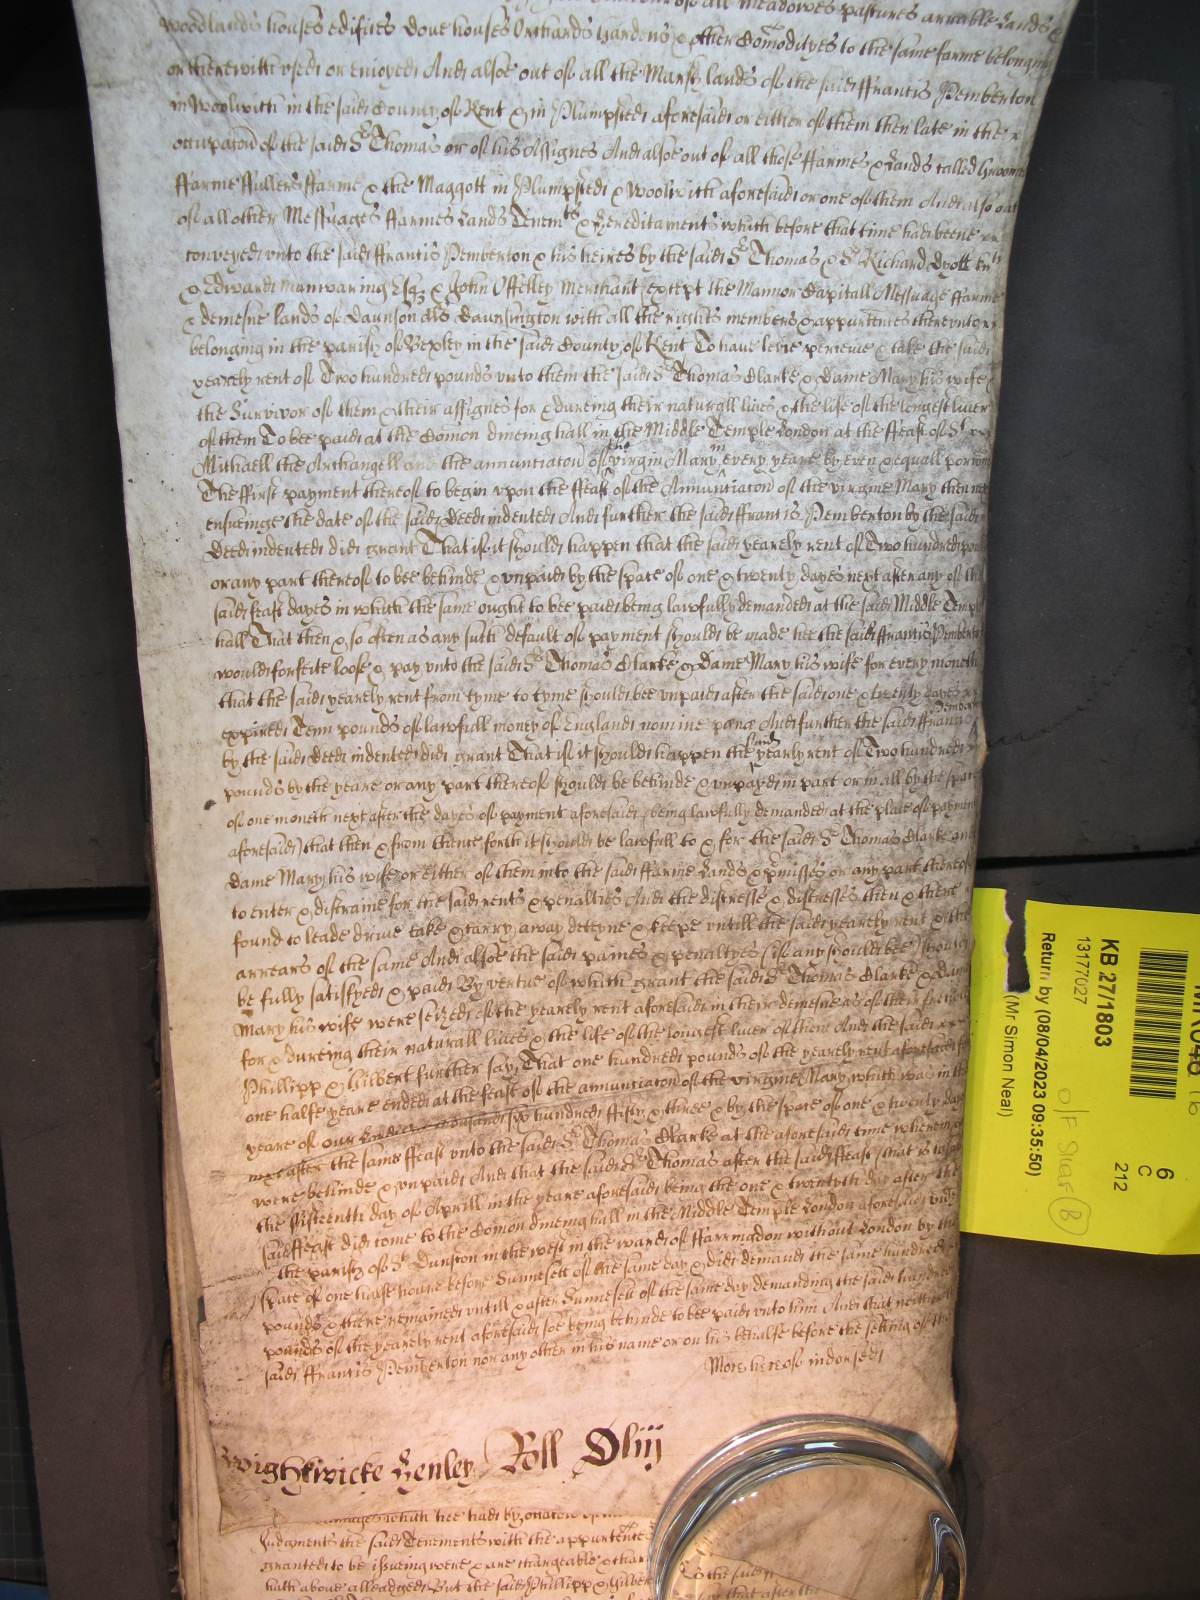 all meadowes pastures arrable Lands &
woodlands houses edifices dove houses Orchards Gardens & other Comodityes to the same farme belonging
or therewith used or enjoyed And alsoe out of all the Marsh lands of the said ffrancis Pemberton
in Woolwich in the said County of Kent & in Plumpsted aforesaid or either of them then late in the
occupacon of the said Sr Thomas or of his Assignes And alsoe out of all those ffarmes & Lands called
ffarme ffullers ffarme & the Maggott in Plumpsted & Woolwich aforesaid or one of them And also out
of all other Messuages ffarmes Lands Tenemts & hereditaments which before that time had beene
conveyed unto the said ffrancis Pemberton & his heires by the said Sr Thomas & Sr Richard Dyott knt
& Edward Manwaring Esqr & John Offley Merchant (except the Mannor Capitall Messuage ffarme
& demesne lands of Daunson als Daunsington with all the rights members & appurtences thereunto
belonging in the parish of Bexley in the said County of Kent To have levie perceive & take the said
yearely rent of Two hundred pounds unto them the said Sr Thomas Clarke & Dame Mary his wife
the Survivor of them & their assignes for & dureing their naturall lives & the life of the longest liver
of them To bee paid at the Comon dineing hall in the Middle Temple London at the ffeast of St
Michaell the Archangell and the annunciacon of the virgin Mary in every yeare by even & equall porcons
The ffirst payment thereof to begin upon the ffeast of the Annunciacon of the virgine Mary then next
ensueinge the date of the said Deed indented And further the said ffrancis Pemberton by the said
Deed indented did grant That if it should happen that the said yearely rent of Two hundred pounds
or any part thereof to bee behinde & unpaid by the space of one & twenty dayes next after any of the
said feast dayes in which the same ought to bee paid being lawfully demanded at the said Middle Temple
hall That then & so often as any such default of payment should be made hee the said ffrancis Pemberton
would forfeite loose & pay unto the said Sr Thomas Clarke & Dame Mary his wife for every moneth
that the said yearely rent from tyme to tyme should bee unpaid after the said one & twenty dayes
expired Tenn pounds of lawfull money of England nomine pene And further the said ffrancis Pemberton
by the said Deed indented did grant That if it should happen the said yearly rent of Two hundred
pounds by the yeare or any part thereof should be behinde & unpayd in part or in all by the space
of one moneth next after the dayes of payment aforesaid (being lawfully demanded at the place of payment
aforesaid) that then & from thence forth it should be lawfull to & for the said Sr Thomas Clarke and
Dame Mary his wife or either of them into the said ffarme Lands & pmisses or any part thereof
to enter & distraine for the said rents & penalties And the distresse & distresses then & there
found to leade drive take & carry away deteyne & keepe untill the said yearely rent & the
arrears of the same And alsoe the said paines & penaltyes (if any should bee) should
be fully satisfyed & paid By vertue of which grant the said Sr Thomas Clarke & Dame
Mary his wife were seized of the yearely rent aforesaid in their demesne as of their freehold
for & dureing their naturall lives & the life of the longest liver of them And the said
Phillipp & Gilbert further say That one hundred pounds of the yearely rent aforesaid for
one halfe yeare ended at the feast of the annunciacon of the virgine Mary which was in the
yeare of our Lord one thousand six hundred fifty & three & by the space of one & twenty dayes
next after the same ffeast unto the said Sr Thomas Clarke at the aforesaid time wherein
were behinde & unpaid And that the said Sr Thomas after the said ffeast (that is to say
the fifteenth day of Aprill in the yeare aforesaid being the one & twentith day after the
said ffeast did come to the Comon dineing hall in the Middle Temple London aforesaid
the parish of St Dunston in the west in the ward of ffarringdon without London by the
space of one halfe houre before Sunnsett of the same day & did demand the same hundred
pounds & there remained untill & after Sunnsett of the same day demanding the said hundred
pounds of the yearely rent aforesaid soe being behinde to bee paid unto him And that neither
said ffrancis Pemberton nor any other in his name or on his behalfe before the setting of the
More hereof indorsed
Wightwicke Henley Roll
which hee had
Judgments the said Tenements with the appurtences
granted to be issueing were & are chargeable & char
hath above alleadged But the said Phillipp & Gilber
KB 27/1803
13177027
Return by (08/04/2023 09:35:50)
(Mr Simon Neal)
O/F Shelf (B)
6
C
212